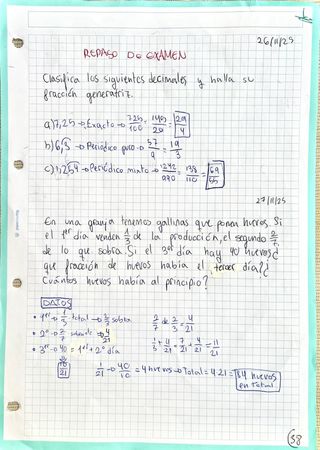 26/11/25
REPASO DE EXAMEN
Clasifica los siguientes decimales y halla su
fracción generatriz.
a) 7,25 → Exacto → 725/100 = 145/20 = 29/4
b) 6,3 → Periódico puro → 57/9 = 19/3
c) 1,254 → Periódico mixto → 1242/990 = 138/110 = 69/55
27/11/25
En una granja tenemos gallinas que ponen huevos. Si
el 1er día venden 1/3 de la producción, el segundo 2/7
de lo que sobra. Si el 3er día hay 40 huevos ¿
que fracción de huevos había el tercer día? ¿
Cuántos huevos había al principio?
DATOS
• 1er → 1/3 total → 2/3 sobra
2/7 de 2/3 = 4/21
• 2º → 2/7 sobrante → 4/21
1/3 + 4/21 = 7/21 + 4/21 = 11/21
• 3er → 40 = 1er + 2º día
10/21
1/21 → 40/10 = 4 huevos → Total = 4·21 = 84 huevos
en total
38